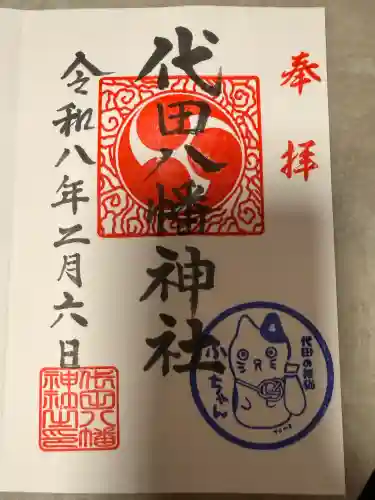 奉拝
代田八幡神社
令和八年二月六日
代田八幡
神社之印
代田の招猫
ふくちゃん